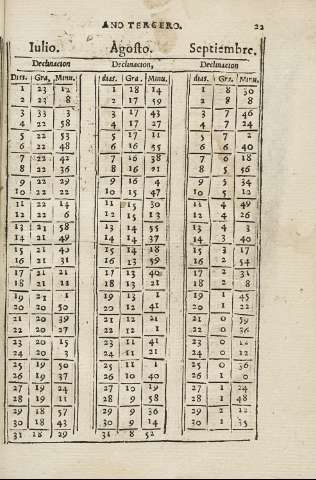 ANO TERCERO. 22
Iulio. Agosto. Septiembre.
Declinacion Declinacion, Declinacion
Dies. Gra. Minu. dias. Gra. Minu. dias. Gra. Minu.
1 23 12 1 18 14 1 8 30
2 23 8 2 17 59 2 8 8
3 33 3 3 17 43 3 7 46
4 22 58 4 17 27 4 7 24
5 22 53 5 17 11 5 7 2
6 22 48 6 16 55 6 6 40
7 22 42 7 16 38 7 6 18
8 22 36 8 16 21 8 5 56
9 22 29 9 16 4 9 5 34
10 22 22 10 15 47 10 5 12
11 22 14 11 15 30 11 4 49
12 22 6 12 15 13 12 4 26
13 21 58 13 14 55 13 4 3
14 21 49 14 14 37 14 3 40
15 21 40 15 14 18 15 3 17
16 21 31 16 13 59 16 2 54
17 21 21 17 13 40 17 2 31
18 21 11 18 13 21 18 2 8
19 21 1 19 13 1 19 1 45
20 20 50 20 12 41 20 1 22
21 20 39 21 12 21 21 0 59
22 20 27 22 12 1 22 0 36
23 20 15 23 11 41 23 0 12
24 20 3 24 11 21 24 0 12
25 19 50 25 11 1 25 0 36
26 19 37 26 10 40 26 1 0
27 19 24 27 10 19 27 1 24
28 19 11 28 9 58 28 1 48
29 18 57 29 9 36 29 2 12
30 18 43 30 9 14 30 1 35
31 18 29 31 8 52